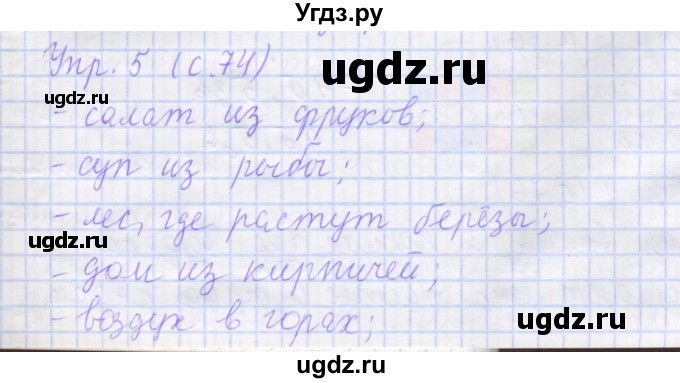 Угдз.ру
Упр. 5 (с.74)
ugdz.ru
ugdz.ru
- салат из фруков;
ugdz.ru
- суп из рыбы;
- лес, где растут берёзы;
ugdz.ru
- дом из кирпичей;
- воздух в горах;
ugdz.ru
ugdz.ru